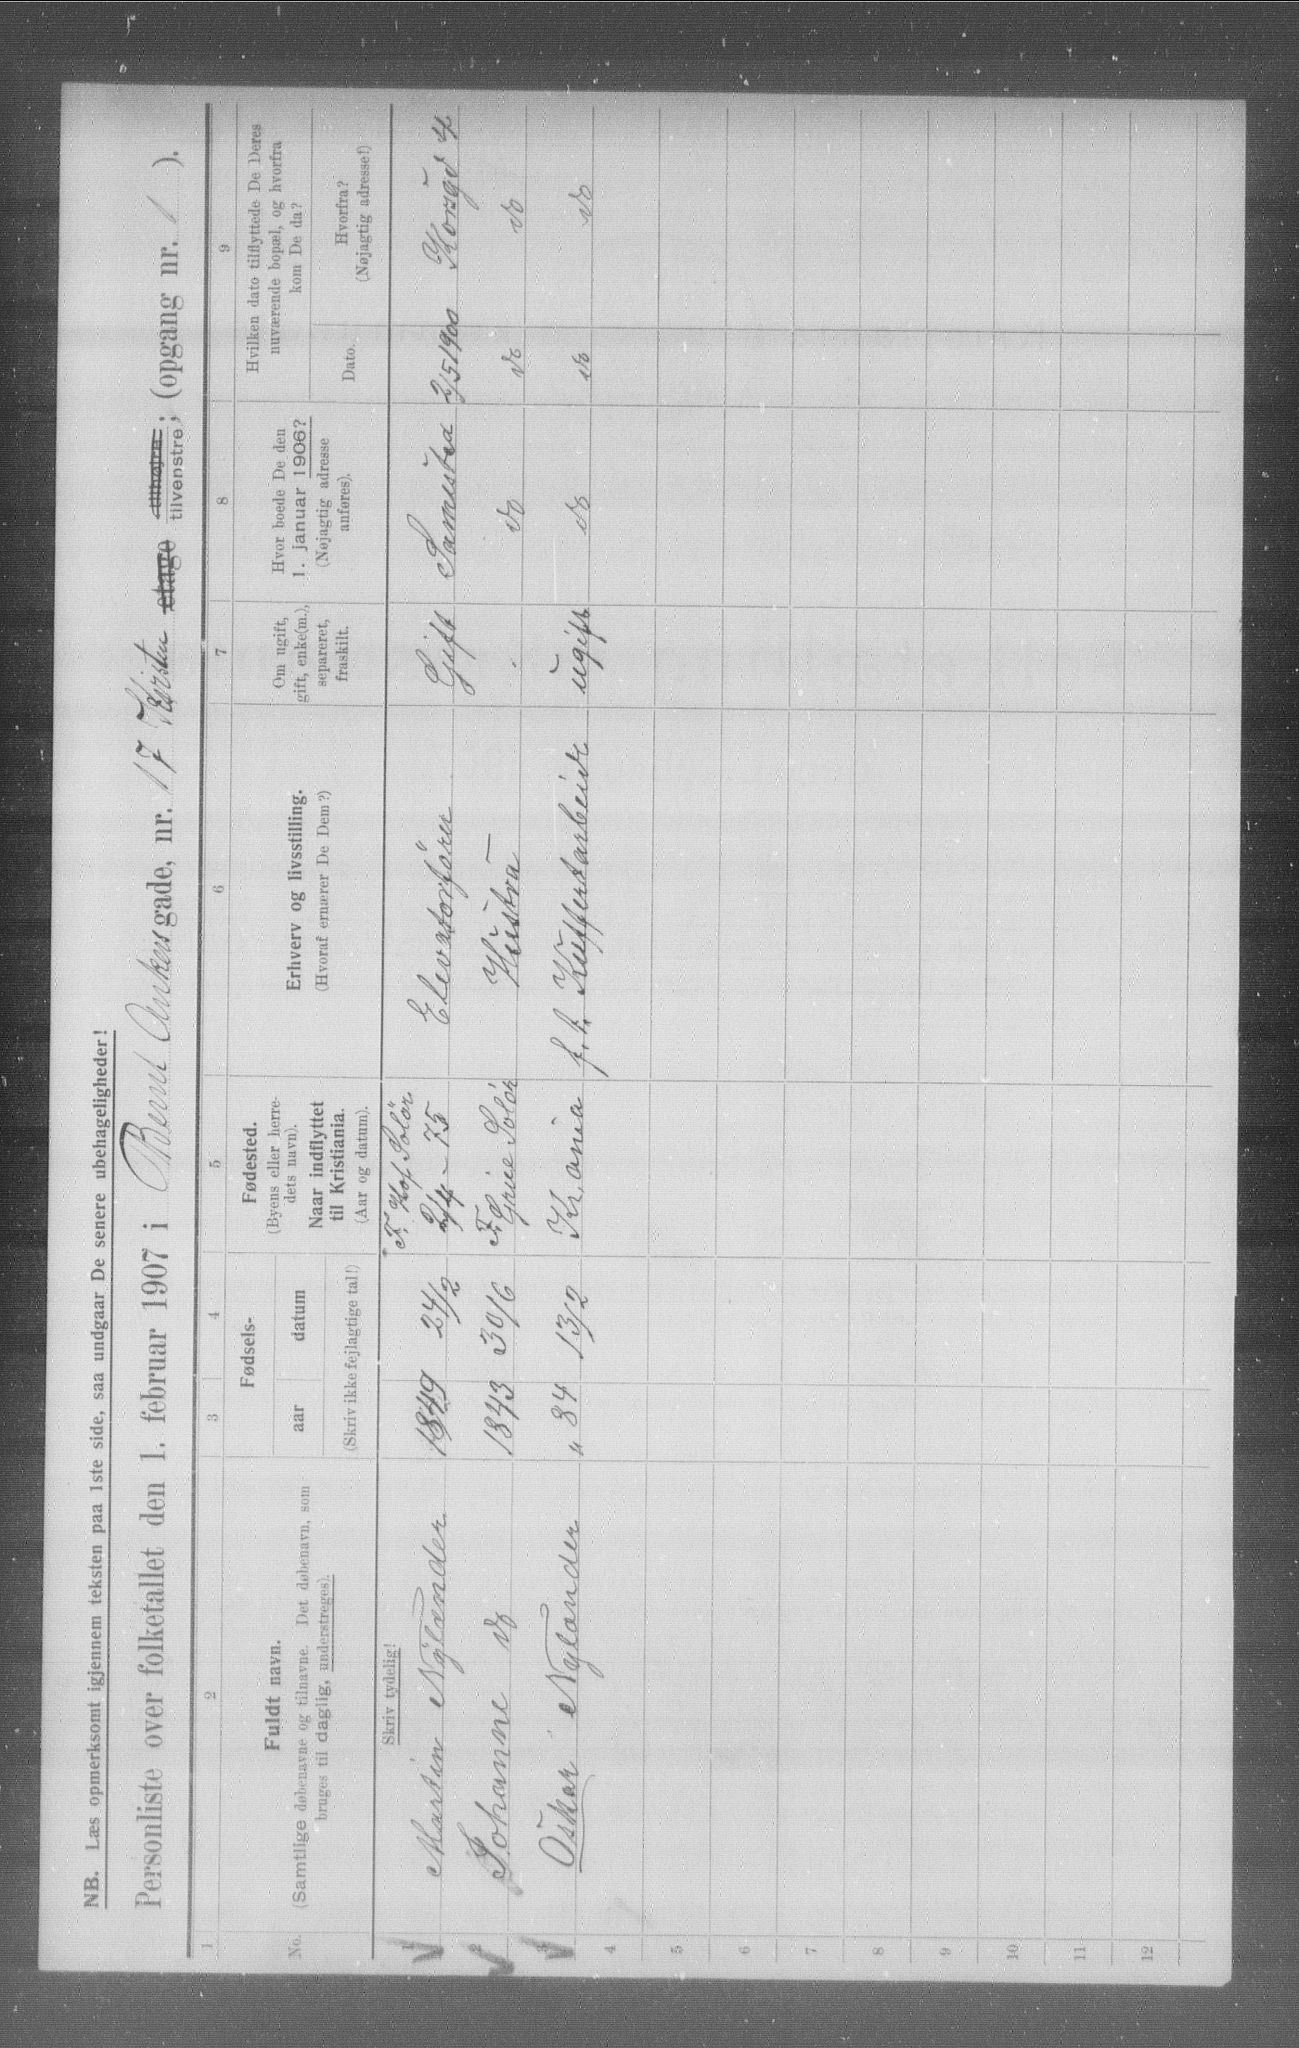 NB. Læs opmerksomt igjennem teksten paa 1ste side, saa undgaar De senere ubehageligheder!
Personliste over folketallet den 1. februar 1907 i Bernt Ankers gade, nr. 17 etage tilhøjre tilvenstre; (opgang nr. 1).
1 2 3 4 5 6 7 8 9
No.
Fuldt navn.
(Samtlige døbenavne og tilnavne. Det døbenavn, som
bruges til daglig, understreges).
Fødsels-
aar datum
(Skriv ikke fejlagtige tal!)
Fødested.
(Byens eller herre-
dets navn).
Naar indflyttet
til Kristiania.
(Aar og datum).
Erhverv og livsstilling.
(Hvoraf ernærer De Dem?)
Om ugift,
gift, enke(m.),
separeret,
fraskilt.
Hvor boede De den
1. januar 1906?
(Nøjagtig adresse
anføres).
Hvilken dato tilflyttede De Deres
nuværende bopæl, og hvorfra
kom De da?
Dato.
Hvorfra?
(Nøjagtig adresse!)
Skriv tydelig!
F. Hof Solør
1 Martin Nylander 1849 24/2 2/4 - 75 Elevatorfører Gift Samested 2/5 1900 Korsgd 4
2 Johanne do 1843 30/6 F. Grue Solør Hustru do do do
3 Oskar Nylander " 84 13/2 Kr.ania f. h. Kuffertarbeide ugift do do do
4
5
6
7
8
9
10
11
12